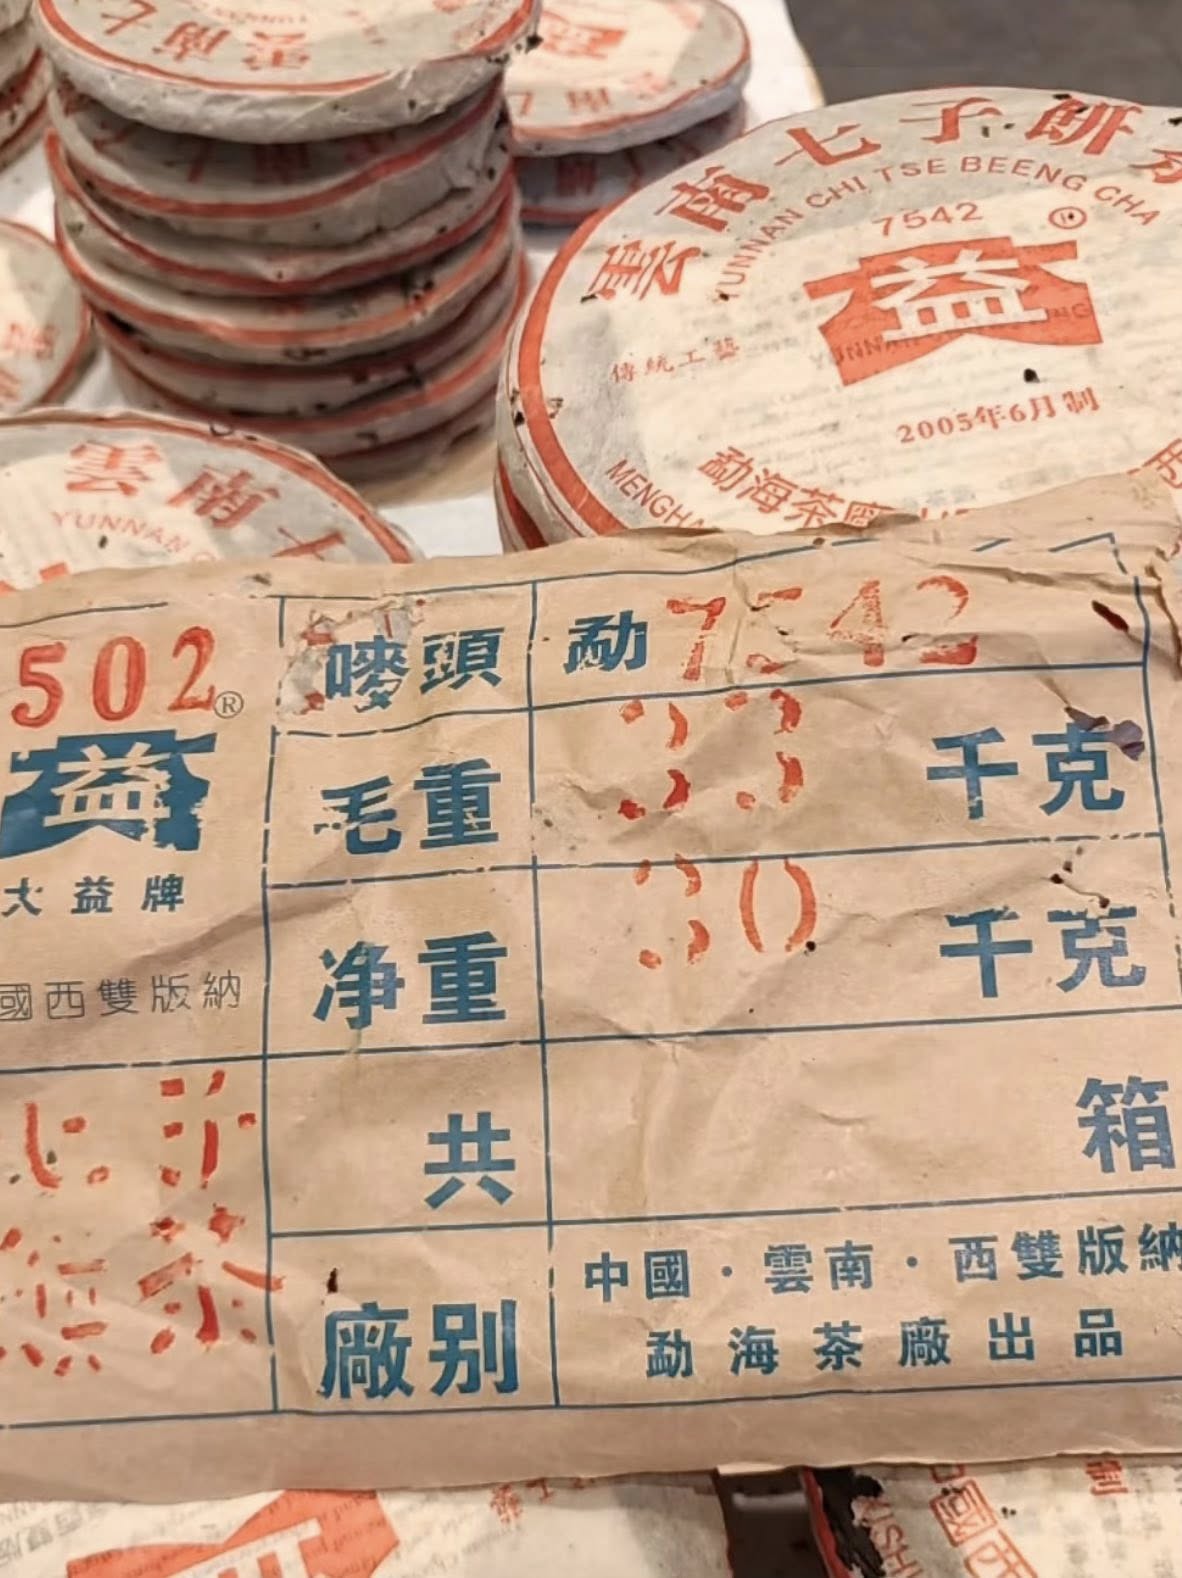 雲南七
雲南七子餅
YUNNAN CHI TSE BEENG CHA
7542
益
傳統工藝
2005年6月制
勐海茶廠
MENGHA
雲南七
YUNNAN C
502
®
益
大益牌
國西雙版納
七子
餅茶
嘜頭 勐 7542
毛重 33 千克
净重 30 千克
共 箱
廠别 中國·雲南·西雙版納
勐海茶廠出品